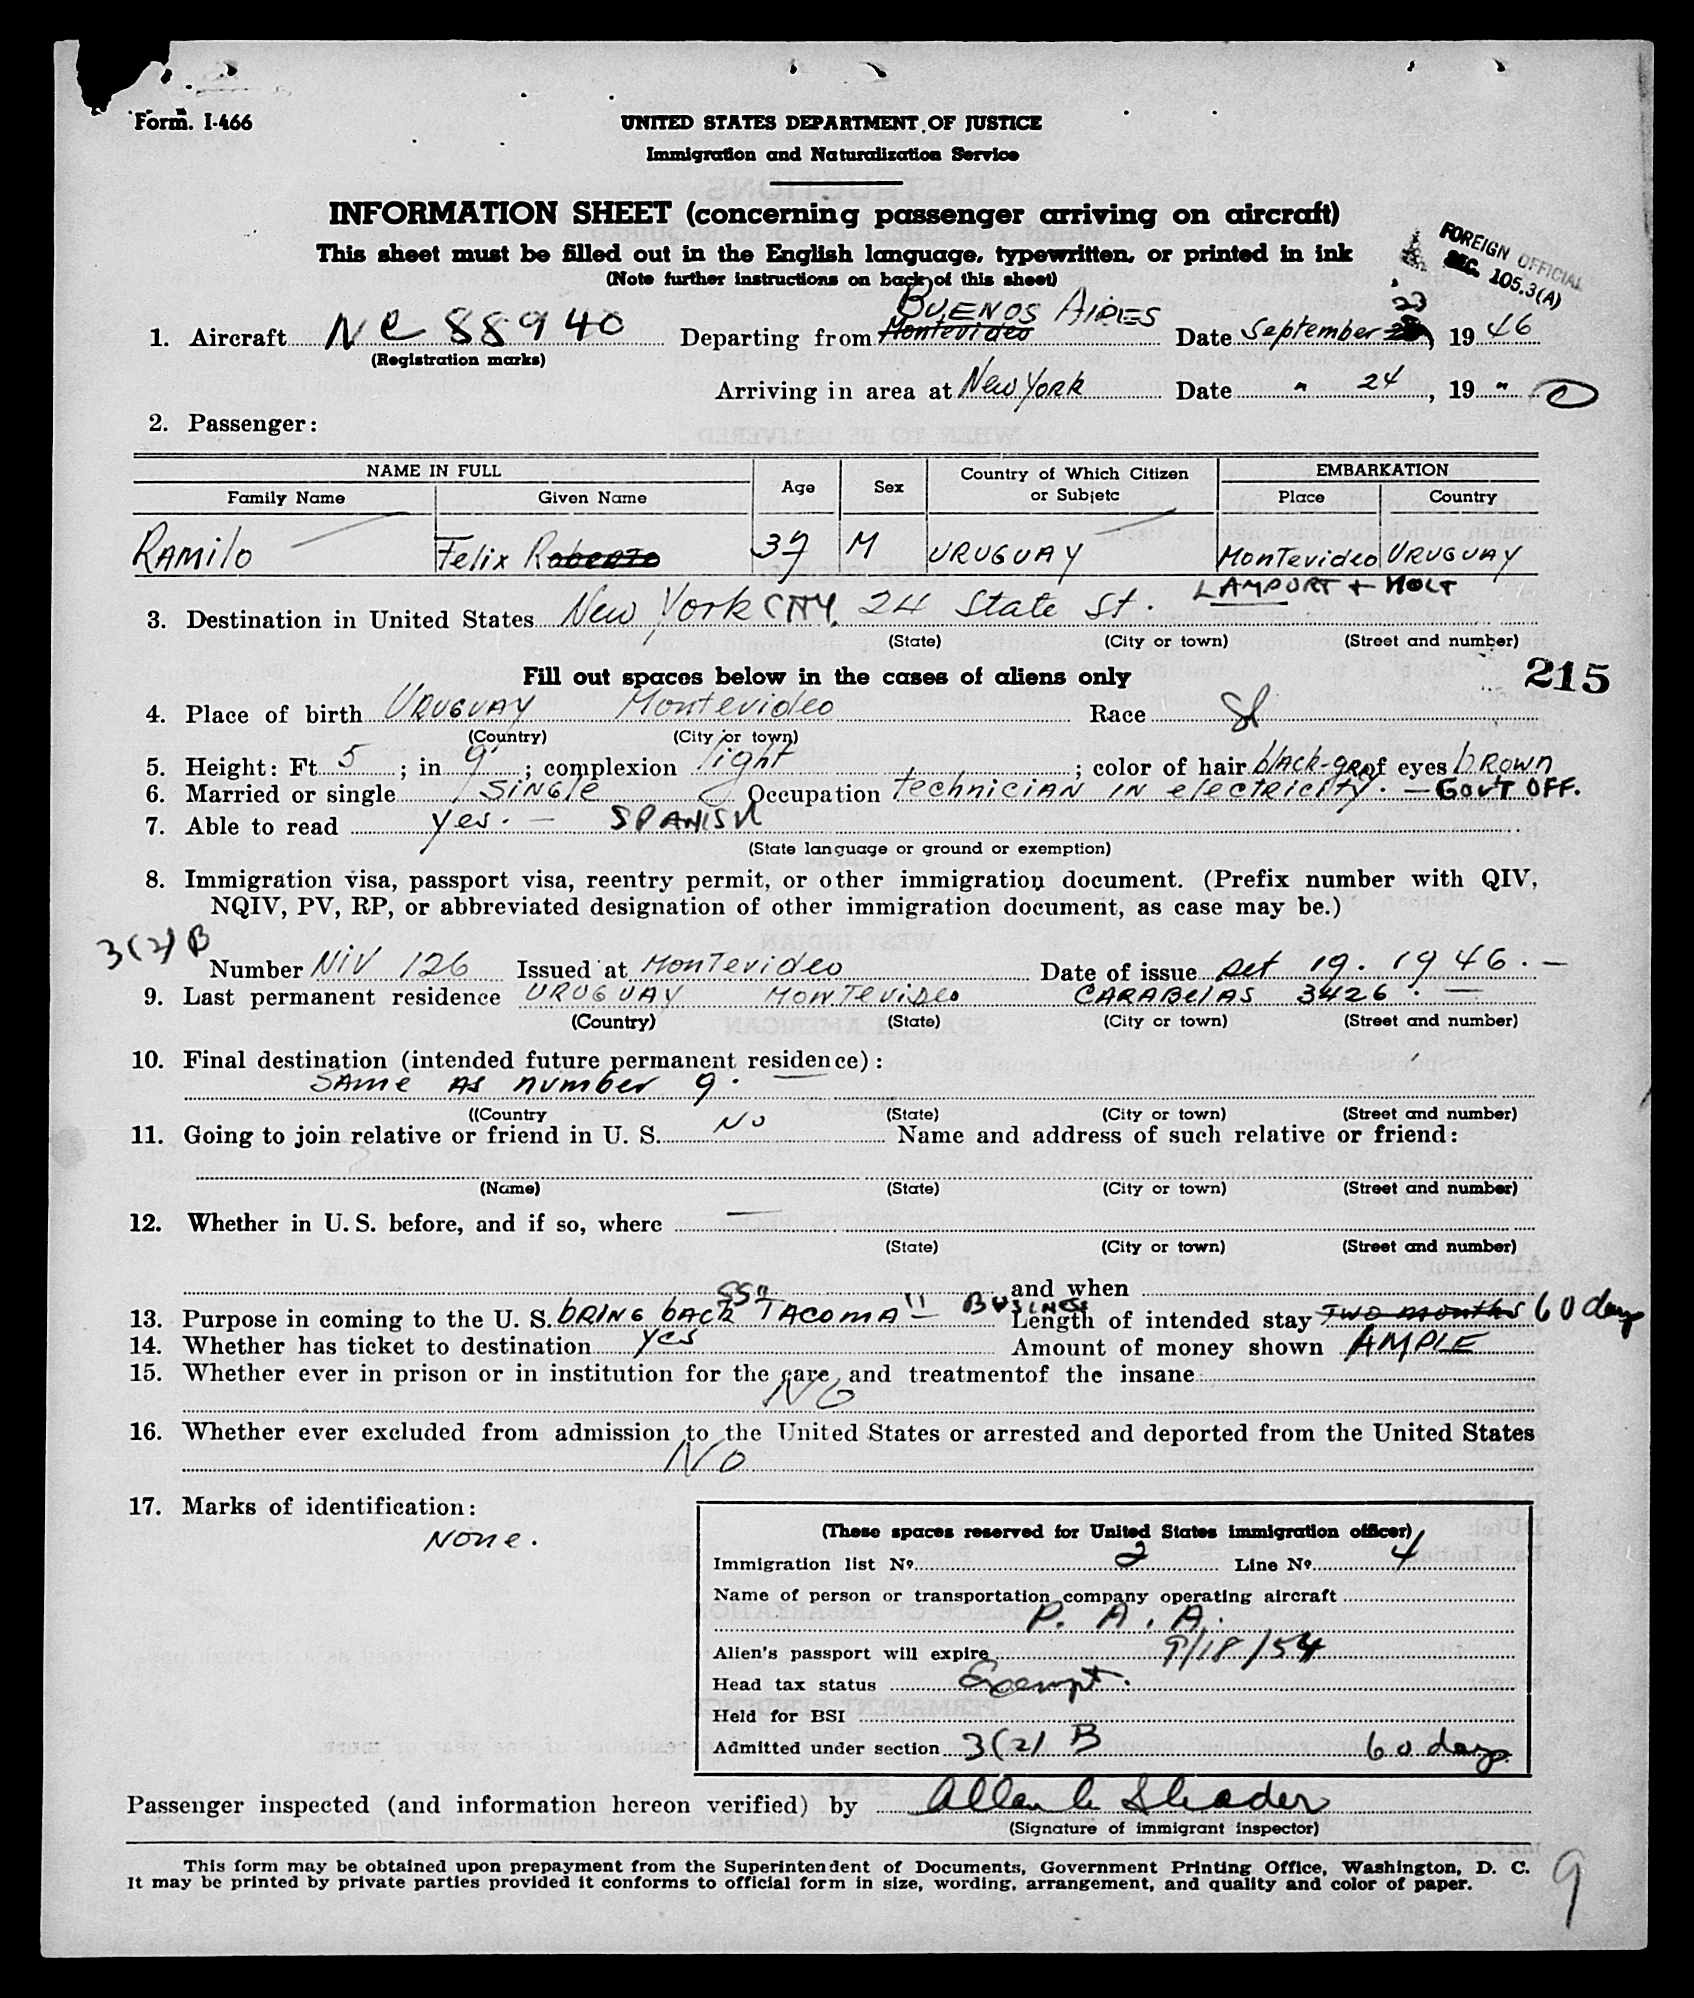 Form. I-466
UNITED STATES DEPARTMENT OF JUSTICE
Immigration and Naturalization Service
INFORMATION SHEET (concerning passenger arriving on aircraft)
This sheet must be filled out in the English language, typewritten, or printed in ink
(Note further instructions on back of this sheet)
FOREIGN OFFICIAL
SEC. 105.3(A)
BUENOS AIRES 23
1. Aircraft NC 88940 Departing from Montevideo Date September , 19 46
(Registration marks)
Arriving in area at New York Date " 24, 19 "
2. Passenger:
NAME IN FULL Age Sex Country of Which Citizen or Subjetc EMBARKATION
Family Name Given Name Place Country
RAMILO Felix Roberto 39 M URUGUAY MONTEVIDEO URUGUAY
LAMPORT + HOLT
3. Destination in United States New York CITY. 24 State St.
(State) (City or town) (Street and number)
Fill out spaces below in the cases of aliens only
215
4. Place of birth URUGUAY Montevideo Race
(Country) (City or town)
5. Height: Ft 5 ; in 9 ; complexion light ; color of hair black-grey of eyes BROWN
6. Married or single SINGLE Occupation technician in electricity. — GOV'T OFF.
7. Able to read yes. — SPANISH
(State language or ground or exemption)
8. Immigration visa, passport visa, reentry permit, or other immigration document. (Prefix number with QIV,
NQIV, PV, RP, or abbreviated designation of other immigration document, as case may be.)
3(2) B
Number NIV 126 Issued at MONTEVIDEO Date of issue set 19. 1946. —
9. Last permanent residence URUGUAY MONTEVIDEO CARABELAS 3426. —
(Country) (State) (City or town) (Street and number)
10. Final destination (intended future permanent residence):
SAME AS number 9. —
((Country (State) (City or town) (Street and number)
11. Going to join relative or friend in U. S. NO Name and address of such relative or friend:
(Name) (State) (City or town) (Street and number)
12. Whether in U. S. before, and if so, where —
(State) (City or town) (Street and number)
and when
13. Purpose in coming to the U. S. BRING BACK SS "TACOMA" — BUSINESS Length of intended stay TWO MONTHS 60 days
14. Whether has ticket to destination yes Amount of money shown AMPLE
15. Whether ever in prison or in institution for the care and treatmentof the insane
NO
16. Whether ever excluded from admission to the United States or arrested and deported from the United States
NO
17. Marks of identification:
NONE.
(These spaces reserved for United States immigration officer)
Immigration list No 2 Line No 4
Name of person or transportation company operating aircraft
P. A. A.
Alien's passport will expire 9/18/54
Head tax status Exempt.
Held for BSI
Admitted under section 3(2) B 60 days
Passenger inspected (and information hereon verified) by Allan Shader
(Signature of immigrant inspector)
This form may be obtained upon prepayment from the Superintendent of Documents, Government Printing Office, Washington, D. C.
It may be printed by private parties provided it conforms to official form in size, wording, arrangement, and quality and color of paper.
9